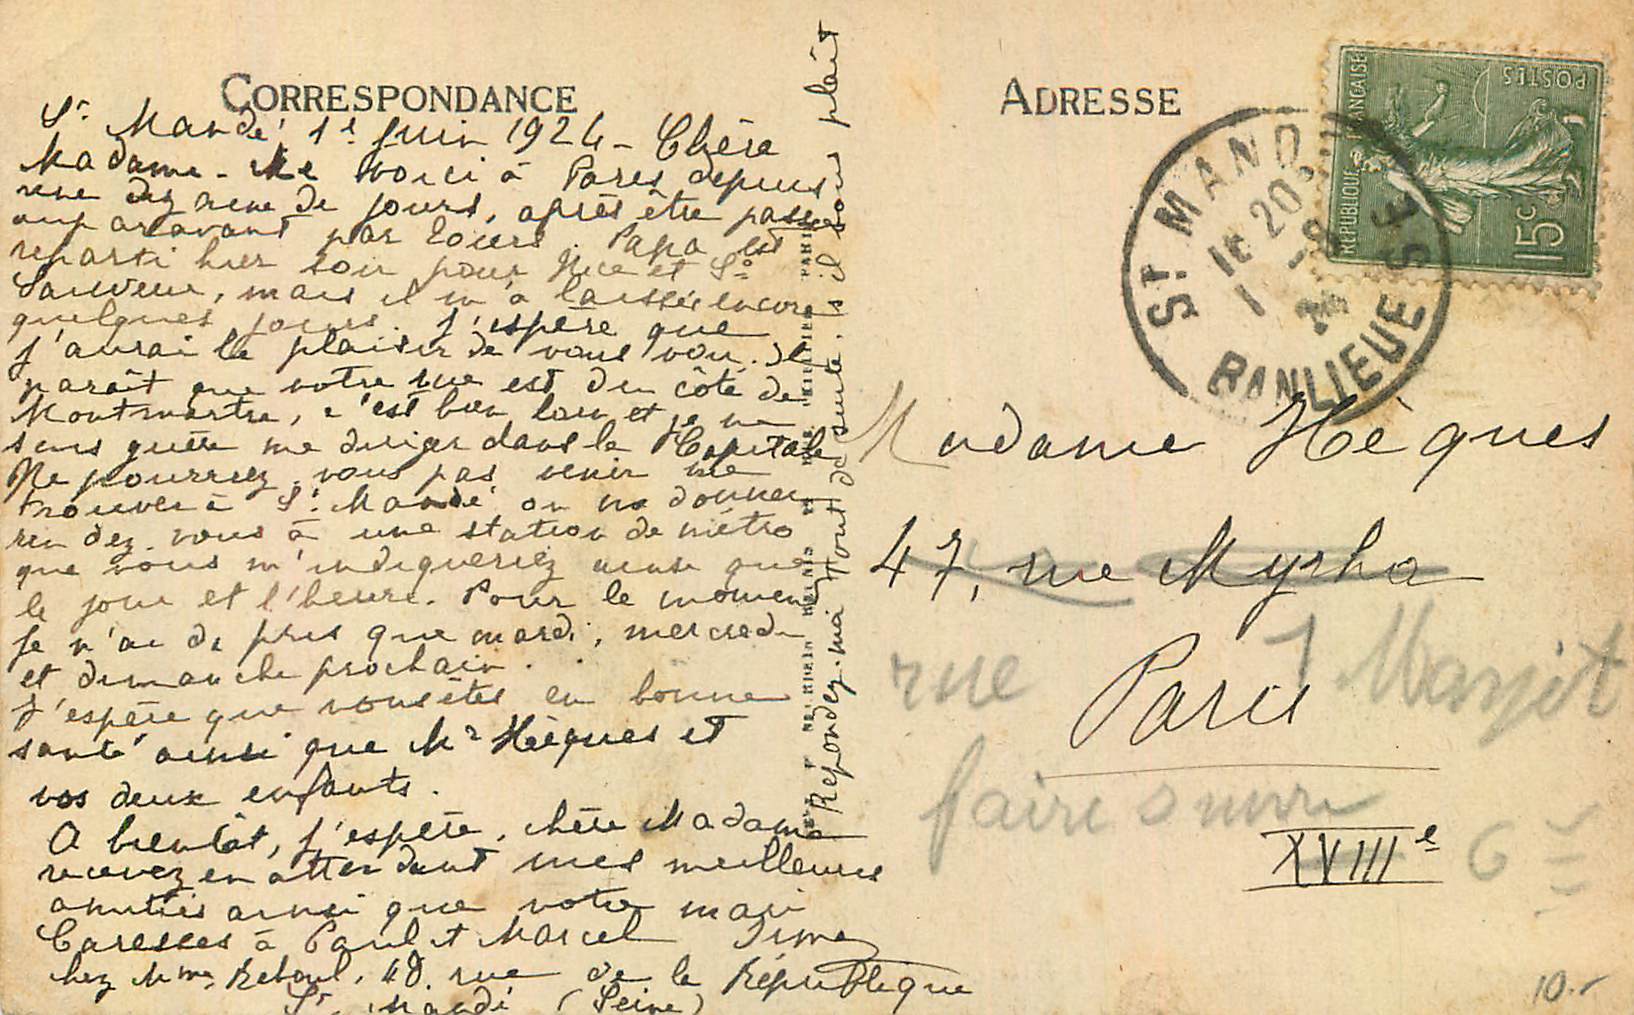 CORRESPONDANCE
St Mandé 1er Juin 1924 - Chère
Madame - Me voici à Paris depuis
une dizaine de jours, après être passée
auparavant par Tours. Papa est
reparti hier soir pour Nice et St
Sauveur, mais il m'a laissée encore
quelques jours. J'espère que
j'aurai le plaisir de vous voir. Il
paraît que votre rue est du côté de
Montmartre, c'est bien loin et je ne
sais guère me diriger dans la Capitale
Ne pourriez-vous pas venir me
trouver à St Mandé ou me donner
rendez-vous à une station de métro
que vous m'indiqueriez ainsi que
le jour et l'heure. Pour le moment
je n'ai de pris que mardi, mercredi
et dimanche prochain.
J'espère que vous êtes en bonne
santé ainsi que Mr Hèques et
vos deux enfants.
A bientôt, j'espère, chère Madame
recevez en attendant mes meilleures
amitiés ainsi que votre mari
Caresses à Paul et Marcel
chez Mme Reboul, 48, rue de la République
St Mandé (Seine)
Répondez-moi tout de suite s'il vous plaît
ADRESSE
REPUBLIQUE FRANCAISE
POSTES
15c
ST MANDE
16 20
1 - 6
24
BANLIEUE SE
Madame Hèques
47, rue Myrha
Paris
XVIIIe
rue
faire suivre
10.-